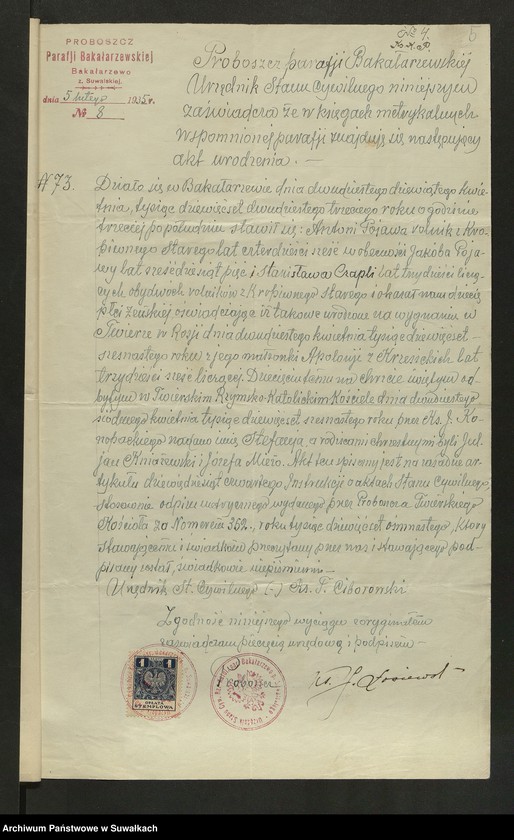 № 4.
5
PROBOSZCZ
Parafji Bakałarzewskiej
Bakałarzewo
z. Suwalskiej.
dnia 5 lutego 1935 r.
№ 8
Proboszcz parafji Bakałarzewskiej
Urzędnik Stanu Cywilnego niniejszem
zaświadcza że w księgach metrykalnych
wspomnionej parafji znajduje się następujący
akt urodzenia. —
N 73. Działo się w Bakałarzewie dnia dwudziestego dziewiątego kwie-
tnia, tysiąc dziewięćset dwudziestego trzeciego roku o godzinie
trzeciej po południu stawił się: Antoni Pojawa rolnik z Kro-
piwnego Starego lat czterdzieści sześć w obecności Jakóba Poja-
wy lat sześćdziesiąt pięć i Stanisława Czapli lat trzydzieści liczą-
cych obydwóch rolników z Kropiwnego Starego i okazał nam dziecię
płci żeńskiej oświadczając iż takowe urodzone na wygnaniu w
Twierze w Rosji dnia dwudziestego kwietnia tysiąc dziewięćset
szesnastego roku z jego małżonki Apolonji z Krzesickich lat
trzydzieści sześć liczącej. Dziecięciu temu na chrzcie świętym od-
bytym w Twierskim Rzymsko-Katolickim Kościele dnia dwudziestego
siódmego kwietnia tysiąc dziewięćset szesnastego roku przez Ks. J. Ko-
nobackiego nadano imię Stefanja, a rodzicami chrzestnymi byli Jul-
jan Kniażewski i Józefa Mieżo. Akt ten spisany jest na zasadzie ar-
tykułu dziewięćdziesiąt czwartego Instrukcji o aktach Stanu Cywilnego,
stosownie odpisu metrycznego wydanego przez Proboszcza Twierskiego
Kościoła za Nomerem 352, roku tysiąc dziewięćset osmnastego, który
stawającemu i świadkom przeczytany przez nas i stawającego pod-
pisany został, świadkowie niepiśmienni. —
Urzędnik St. Cywilnego (-) Ks. P. Ciborowski
Zgodność niniejszego wyciągu z oryginałem
zaświadczam pieczęcią urzędową i podpisem —
1
1
OPŁATA
STEMPLOWA
Archiwum Państwowe w Suwałkach